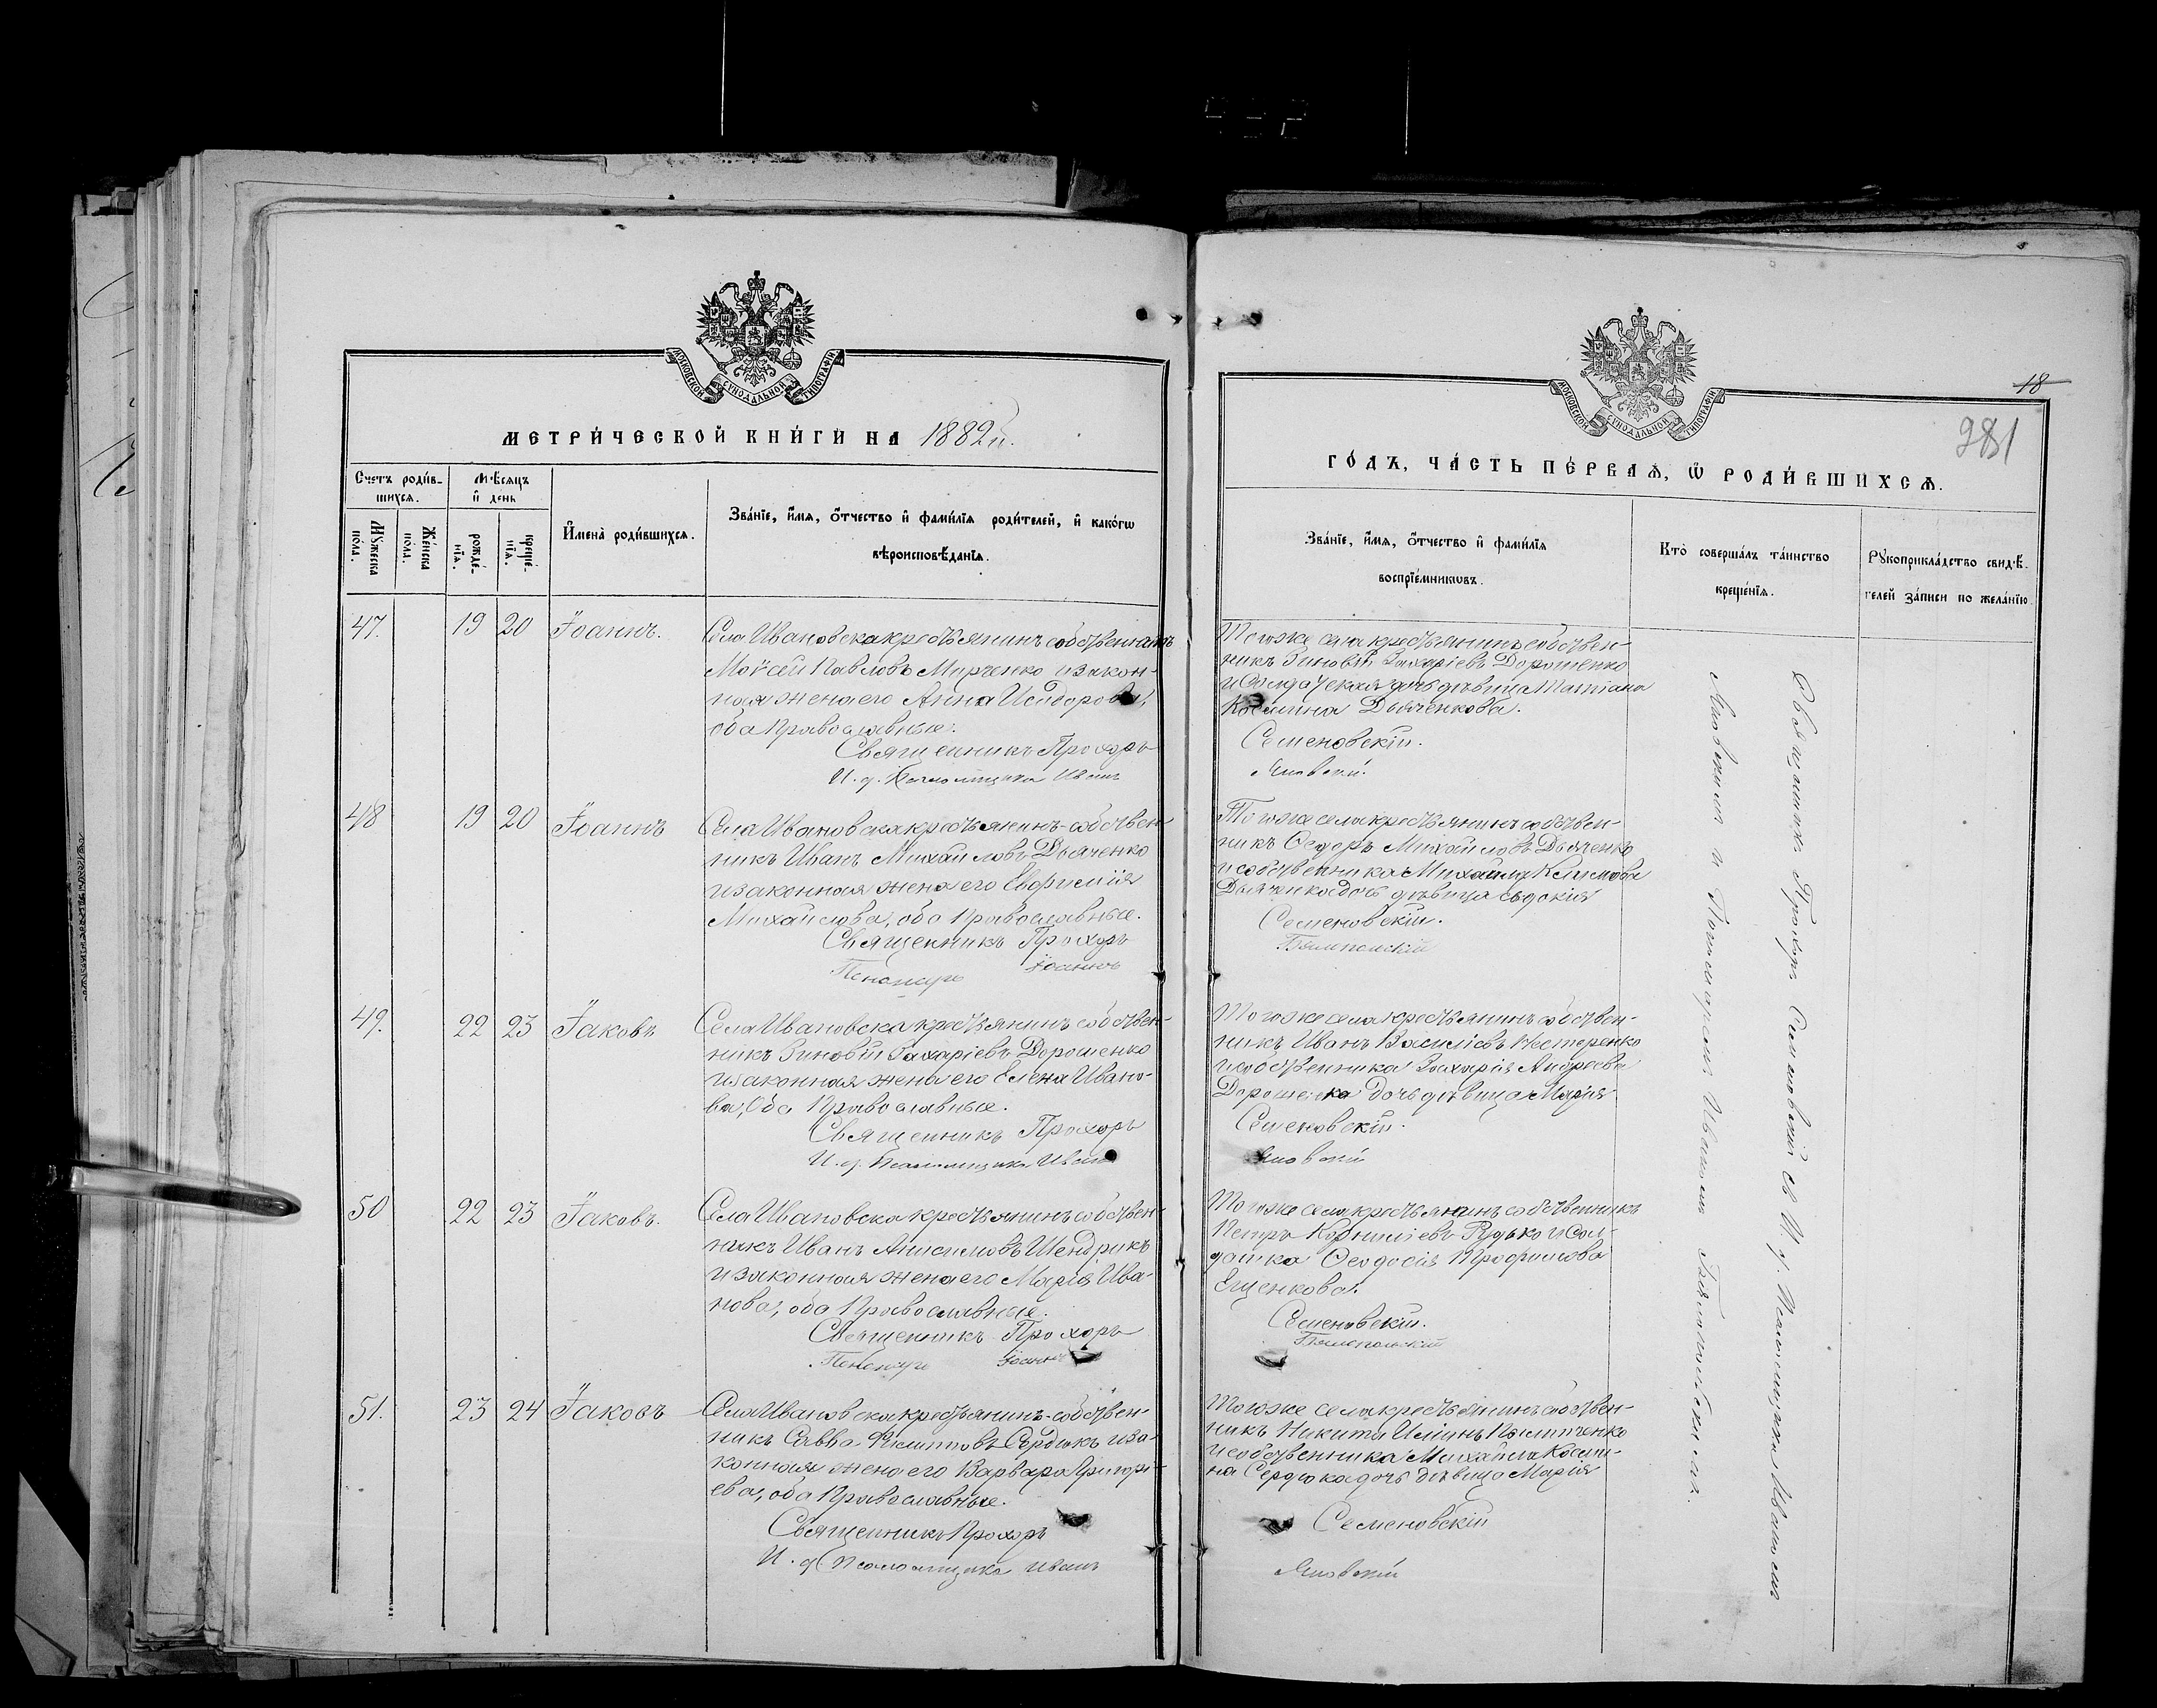 МОСКОВСКОЙ СУНОДАЛЬНОЙ ТИПОГРАФІИ
МЕТРИ́ЧЕСКОЙ КНИ́ГИ НА 1882й.
Счетъ роди́в-
шихся.
Мѣсяцъ
и҆ день
Мꙋ́жеска
по́ла.
Же́нска
по́ла.
рожде́-
нїѧ.
креще́-
нїѧ.
И҆мена̀ роди́вшихсѧ.
Зва́нїе, и҆́мѧ, ѻ҆́тчество и҆ фами́лїѧ роди́телей, и҆ како́гѡ
вѣроисповѣ́данїѧ.
47. 19 20 Іоаннъ.
Села Ивановска крестьянинъ собственникъ
Моѵсей Павловъ Марченко и закон-
ная жена его Анна Исидорова,
оба Православные.
Священникъ Прохоръ
И. д. Псаломщика Иванъ
48 19 20 Іоаннъ
Села Ивановска крестьянинъ-собствен-
никъ Иванъ Михайловъ Дьяченко
и законная жена его Евфимія
Михайлова, оба Православные.
Священникъ Прохоръ
Пономарь Іоаннъ
49. 22 23 Іаковъ
Села Ивановска крестьянинъ собствен-
никъ Зиновій Захаріевъ Дорошенко
и законная жена его Елена Ивано-
ва, Оба Православные.
Священникъ Прохоръ
И. д. Псаломщика Иванъ
50 22 23 Іаковъ.
Села Ивановска крестьянинъ собствен-
никъ Иванъ Анисимовъ Шендрикъ
и законная жена его Марія Ива-
нова, оба Православные.
Священникъ Прохоръ
Пономарь Іоаннъ
51. 23 24 Іаковъ
Села Ивановска крестьянинъ-собствен-
никъ Савва Филипповъ Сердюкъ и за-
конная жена его Варвара Григорі-
ева, оба Православные.
Священникъ Прохоръ
И. д. Псаломщика Иванъ
18
381
МОСКОВСКОЙ СУНОДАЛЬНОЙ ТИПОГРАФІИ
ГО́ДЪ, ЧА́СТЬ ПЕ́РВАѦ, Ѡ҆ РОДИ́ВШИХСѦ.
Зва́нїе, и҆́мѧ, ѻ҆́тчество и҆ фами́лїѧ
воспрїе́мникѡвъ.
Кто̀ соверша́лъ та́инство
креще́нїѧ.
Рꙋкоприкла́дство свидѣ́-
телей за́писи по жела́нїю
Того же села крестьянинъ собствен-
никъ Зиновій Захаріевъ Дорошенко
и Солдатская дочь девица Татіана
Косьмина Дьяченкова.
Семеновскій.
Яновскій.
Того же села крестьянинъ собствен-
никъ Ѳедоръ Михайловъ Дьяченко
и собственника Михаила Климова
Дьяченка дочь девица Евдокія
Семеновскій.
Того же села крестьянинъ собствен-
никъ Иванъ Василіевъ Нестеренко
и собственника Захарія Андреева
Дорошенка дочь девица Марія
Семеновскій.
Яновскій
Того же села крестьянинъ собственникъ
Петръ Корниліевъ Рудько и Сол-
датка Ѳеодосія Трофимова
Ещенкова.
Семеновскій.
Того же села крестьянинъ собствен-
никъ Никита Пилипченко
и собственника Михаила Косьми-
на Сердюка дочь девица Марія
Семеновскій
Яновскій
Священникъ Прохоръ Семеновскій съ И. д. Псаломщика Иваномъ
Яновскимъ и Пономаремъ Иваномъ